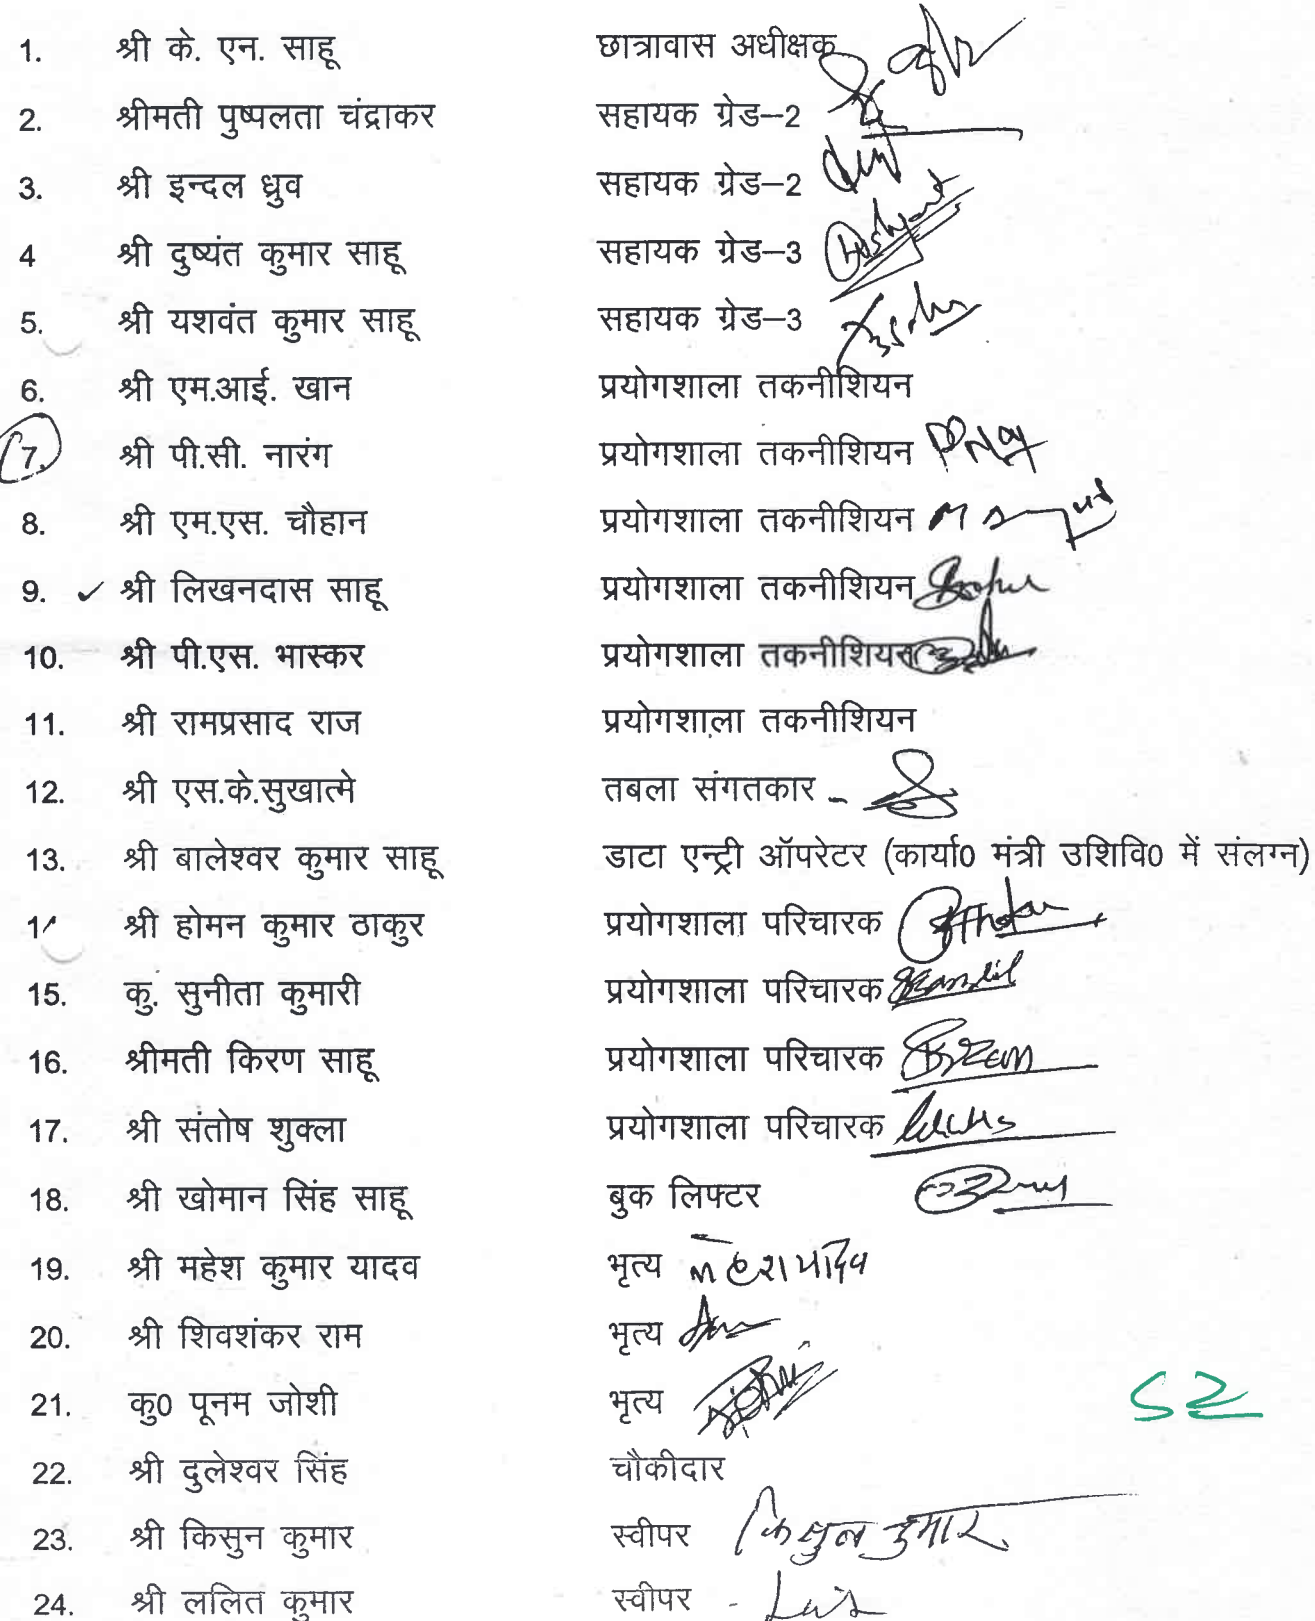 1. श्री के. एन. साहू छात्रावास अधीक्षक
2. श्रीमती पुष्पलता चंद्राकर सहायक ग्रेड–2
3. श्री इन्दल ध्रुव सहायक ग्रेड–2
4 श्री दुष्यंत कुमार साहू सहायक ग्रेड–3 Dushyant
5. श्री यशवंत कुमार साहू सहायक ग्रेड–3
6. श्री एम.आई. खान प्रयोगशाला तकनीशियन
7. श्री पी.सी. नारंग प्रयोगशाला तकनीशियन
8. श्री एम.एस. चौहान प्रयोगशाला तकनीशियन
9. ✓ श्री लिखनदास साहू प्रयोगशाला तकनीशियन
10. श्री पी.एस. भास्कर प्रयोगशाला तकनीशियन
11. श्री रामप्रसाद राज प्रयोगशाला तकनीशियन
12. श्री एस.के.सुखात्मे तबला संगतकार -
13. श्री बालेश्वर कुमार साहू डाटा एन्ट्री ऑपरेटर (कार्या0 मंत्री उशिवि0 में संलग्न)
14 श्री होमन कुमार ठाकुर प्रयोगशाला परिचारक
15. कु. सुनीता कुमारी प्रयोगशाला परिचारक
16. श्रीमती किरण साहू प्रयोगशाला परिचारक
17. श्री संतोष शुक्ला प्रयोगशाला परिचारक
18. श्री खोमान सिंह साहू बुक लिफ्टर
19. श्री महेश कुमार यादव भृत्य महेश यादव
20. श्री शिवशंकर राम भृत्य
21. कु0 पूनम जोशी भृत्य 52
22. श्री दुलेश्वर सिंह चौकीदार
23. श्री किसुन कुमार स्वीपर किसुन कुमार
24. श्री ललित कुमार स्वीपर -